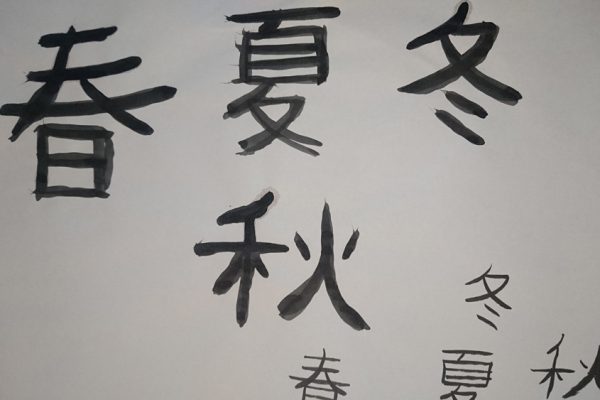 春 夏 冬
秋
冬
春 夏 秋